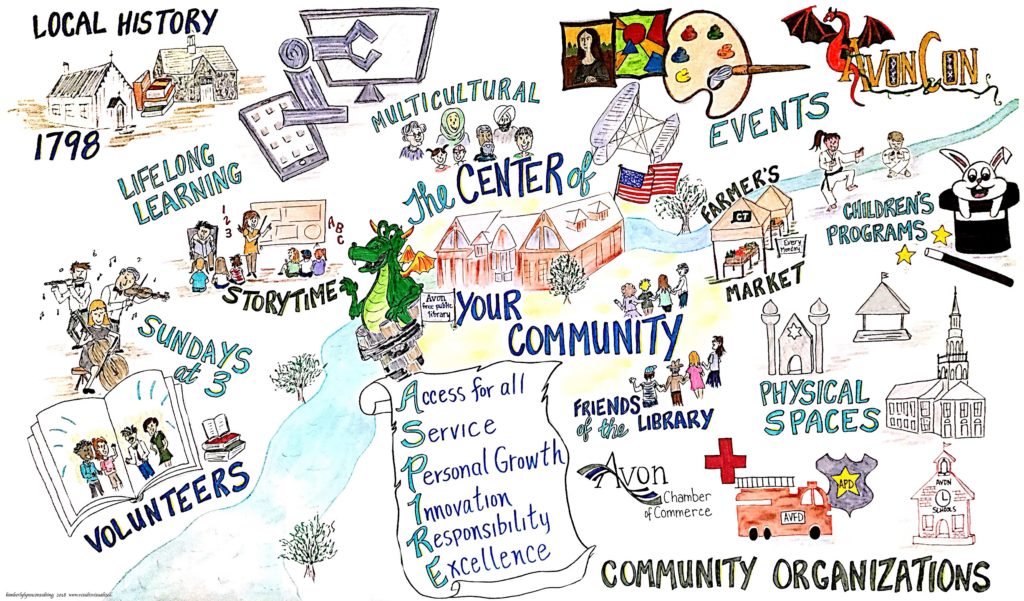 LOCAL HISTORY
1798
MULTICULTURAL
AVONCON
EVENTS
LIFELONG
LEARNING
1
2
3
A
B
C
STORYTIME
The CENTER of
YOUR
COMMUNITY
Avon
free public
library
FARMER'S
MARKET
CT
Every
Monday
CHILDREN'S
PROGRAMS
SUNDAYS
at 3
VOLUNTEERS
ASPIRE
Access for all
Service
Personal Growth
Innovation
Responsibility
Excellence
FRIENDS
of the LIBRARY
PHYSICAL
SPACES
Avon
Chamber
of Commerce
AVFD
APD
AVON
SCHOOLS
COMMUNITY ORGANIZATIONS